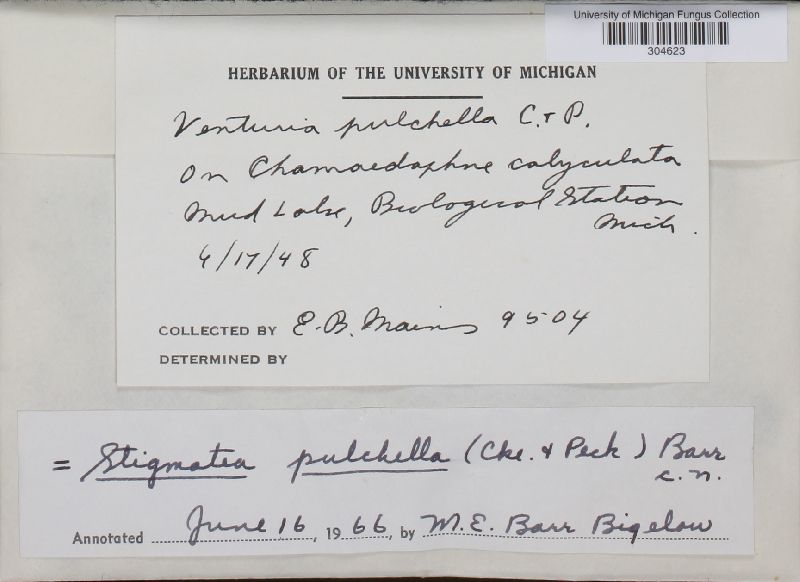 University of Michigan Fungus Collection
304623
HERBARIUM OF THE UNIVERSITY OF MICHIGAN
Venturia pulchella C. & P.
on Chamaedaphne calyculata
Mud Lake, Biological Station
Mich.
6/17/48
COLLECTED BY E. B. Mains 9504
DETERMINED BY
= Stigmatea pulchella (Cke. & Peck) Barr
c.n.
Annotated June 16, 1966, by M. E. Barr Bigelow